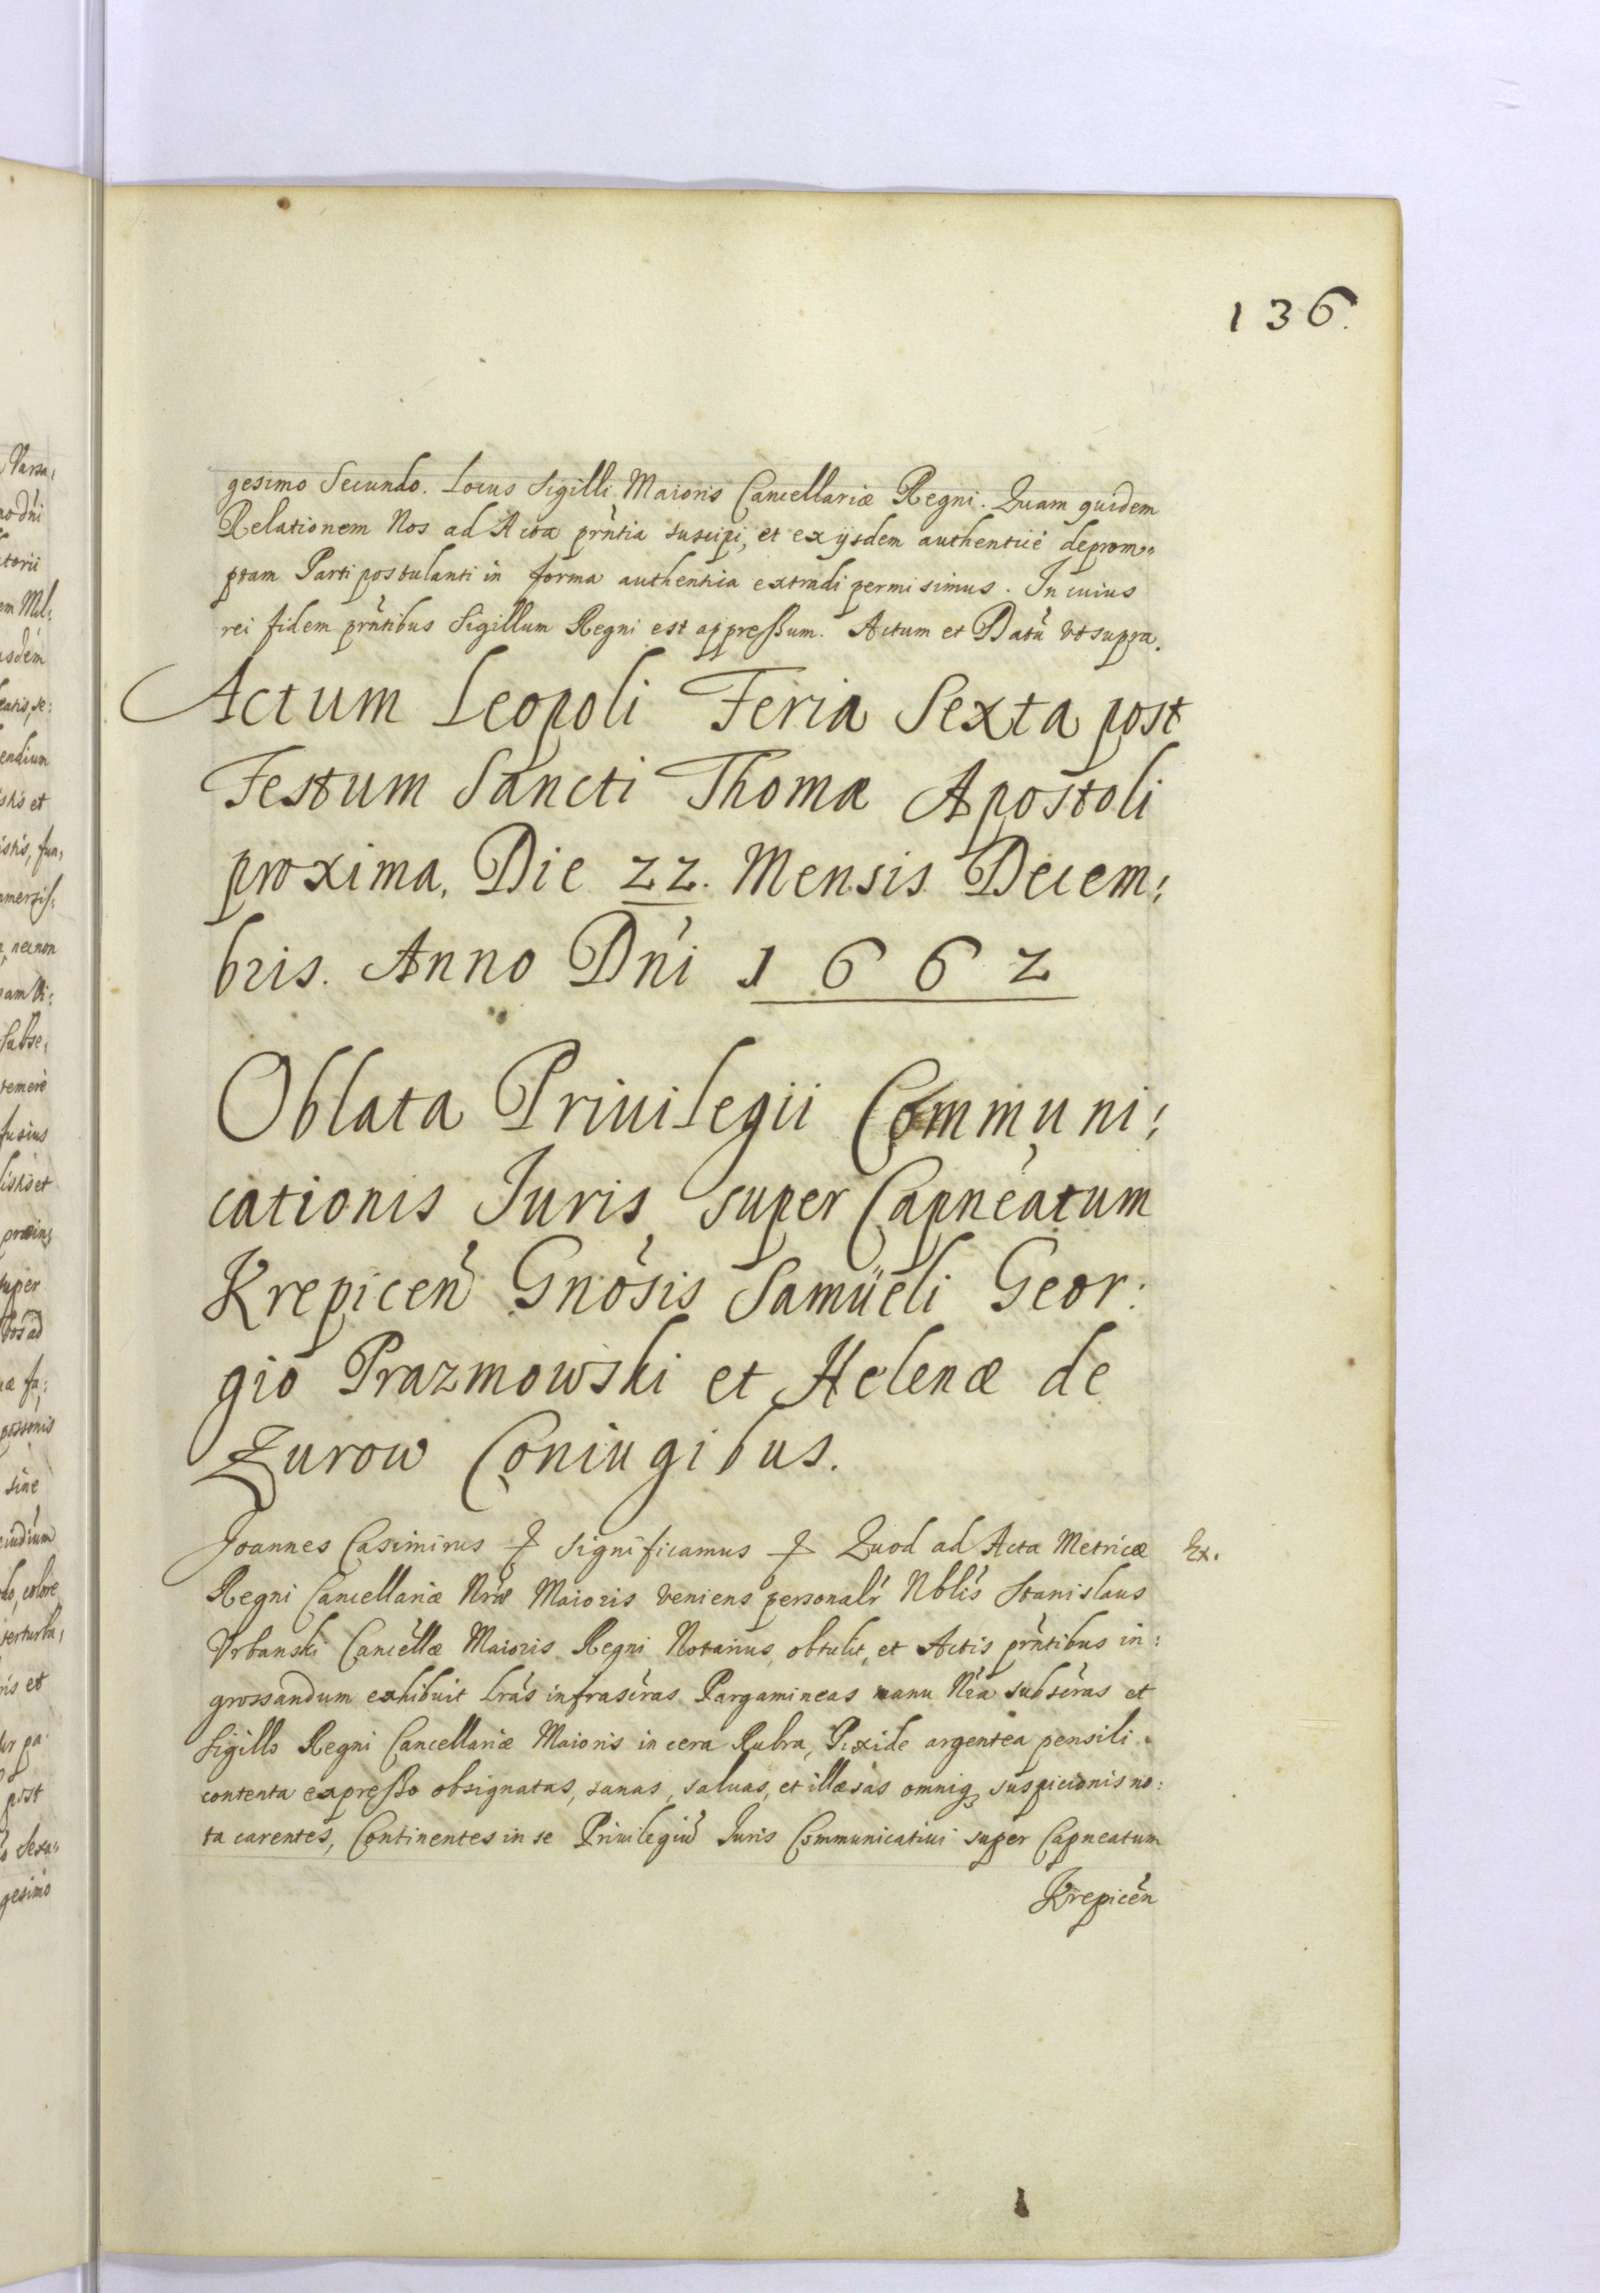 136.
gesimo Secundo. Locus Sigilli Maioris Cancellariæ Regni. Quam quidem
Relationem Nos ad Acta prńtia suscipi, et ex ijsdem authenticè deprom„
ptam Parti postulanti in forma authentica extradi permisimus. In cuius
rei fidem prńtibus Sigillum Regni est appressum. Actum et Datũ vt supra.
Actum Leopoli Feria Sexta post
Festum Sancti Thomæ Apostoli
proxima, Die 22. Mensis Decem:
bris. Anno Dńi 1662
Oblata Priuilegii Communi:
cationis Iuris super Capneatum
Krepiceń Gnósis Samüeli Geor:
gio Prazmowski et Helenæ de
Zurow Coniugibus.
Joannes Casimirus significamus Quod ad Acta Metricæ
Ex.
Regni Cancellariæ Nræ Maioris veniens personalr Nblis Stanislaus
Vrbanski Cancellæ Maioris Regni Notarius, obtulit, et Actis prńtibus in:
grossandum exhibuit lrás infrascras Pargamineas manu Nra subscras et
Sigillo Regni Cancellariæ Maioris in cera Rubra, Pixide argentea pensili
contenta expresso obsignatas, sanas, saluas, et illæsas omniq suspicionis no:
ta carentes, Continentes in se Priuilegiũ Iuris Communicatiui super Capneatum
Krepiceń
Varsa,
dńi
torii
em Mil:
usdem
endium
et
istis, fun,
necnon
Subse,
temerè
fusius
super
sine
et
post
gesimo